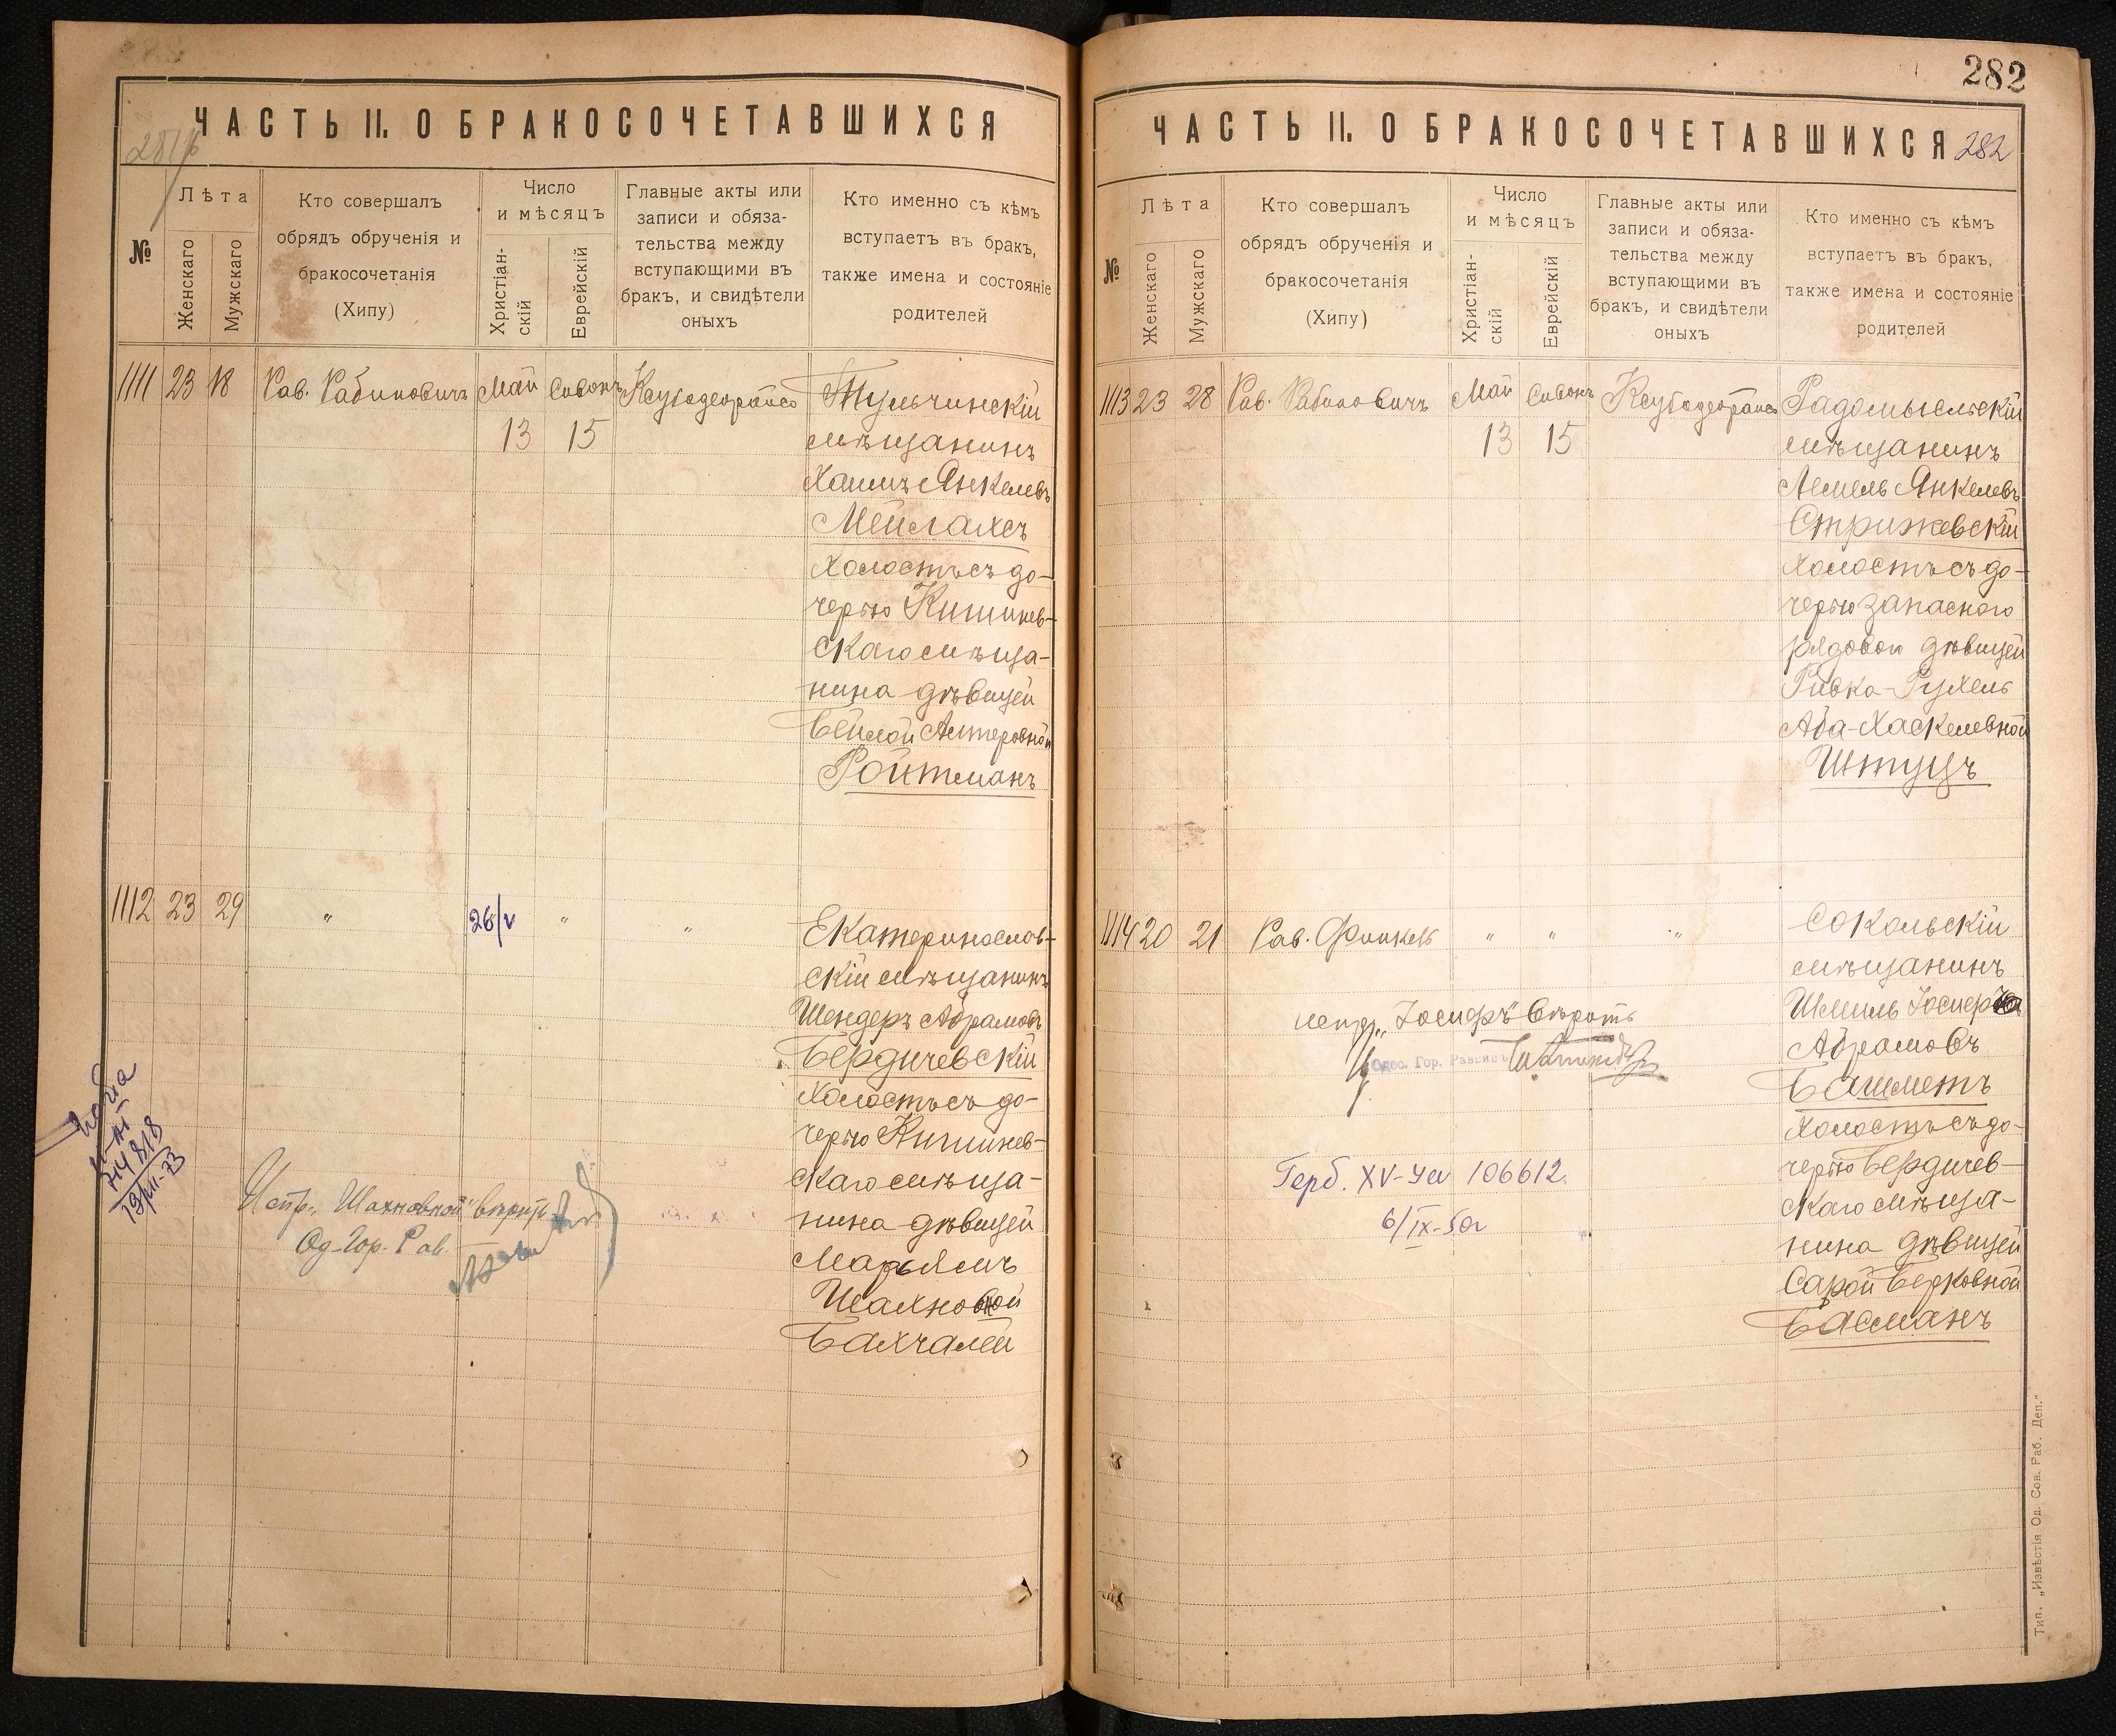 ЧАСТЬ II. О БРАКОСОЧЕТАВШИХСЯ
281/б
№
Лѣта
Женскаго
Мужскаго
Кто совершалъ
обрядъ обрученія и
бракосочетанія
(Хипу)
Число
и мѣсяцъ
Христіан-
скій
Еврейскій
Главные акты или
записи и обяза-
тельства между
вступающими въ
бракъ, и свидѣтели
оныхъ
Кто именно съ кѣмъ
вступаетъ въ бракъ,
также имена и состояніе
родителей
1111 23 18 Рав. Рабиновичъ Май Сивонъ Ксубодеорайсо Тульчинскій
13 15 мѣщанинъ
Хаимъ Янкелевъ
Мейлахсъ
холостъ съ до-
черью Кишинев-
скаго мѣща-
нина дѣвицей
Бейлой Алтеровной
Ройтманъ
1112 23 29 " 26/V " " Екатеринослав-
скій мѣщанинъ
Шендеръ Абрамовъ
Бердичевскій
холостъ съ до-
черью Кишинев-
скаго мѣща-
нина дѣвицей
Марьямъ
Шахновной
Бахчалей
Испр. „Шахновной" вѣрить
Од. Гор. Рав.
13/VII-73
282
ЧАСТЬ II. О БРАКОСОЧЕТАВШИХСЯ
282
№
Лѣта
Женскаго
Мужскаго
Кто совершалъ
обрядъ обрученія и
бракосочетанія
(Хипу)
Число
и мѣсяцъ
Христіан-
скій
Еврейскій
Главные акты или
записи и обяза-
тельства между
вступающими въ
бракъ, и свидѣтели
оныхъ
Кто именно съ кѣмъ
вступаетъ въ бракъ,
также имена и состояніе
родителей
1113 23 28 Рав. Рабиновичъ Май Сивонъ Ксубодеорайсо Радомысльскій
13 15 мѣщанинъ
Лемель Янкелевъ
Стрижевскій
холостъ съ до-
черью запаснаго
рядовой дѣвицей
Ривка-Рухель
Аба-Хаскелевной
Штуцъ
1114 20 21 Рав. Финкель " " " Сокольскій
мѣщанинъ
Шмиль Іосифъ
Абрамовъ
Башметъ
холостъ съ до-
черью Бердичев-
скаго мѣща-
нина дѣвицей
Сарой Берковной
Басманъ
испр. „Іосифъ" вѣрить
Одес. Гор. Раввинъ
Герб. XV-Уа 106612.
6/IX-50г
Тип. „Извѣстія Од. Сов. Раб. Деп."